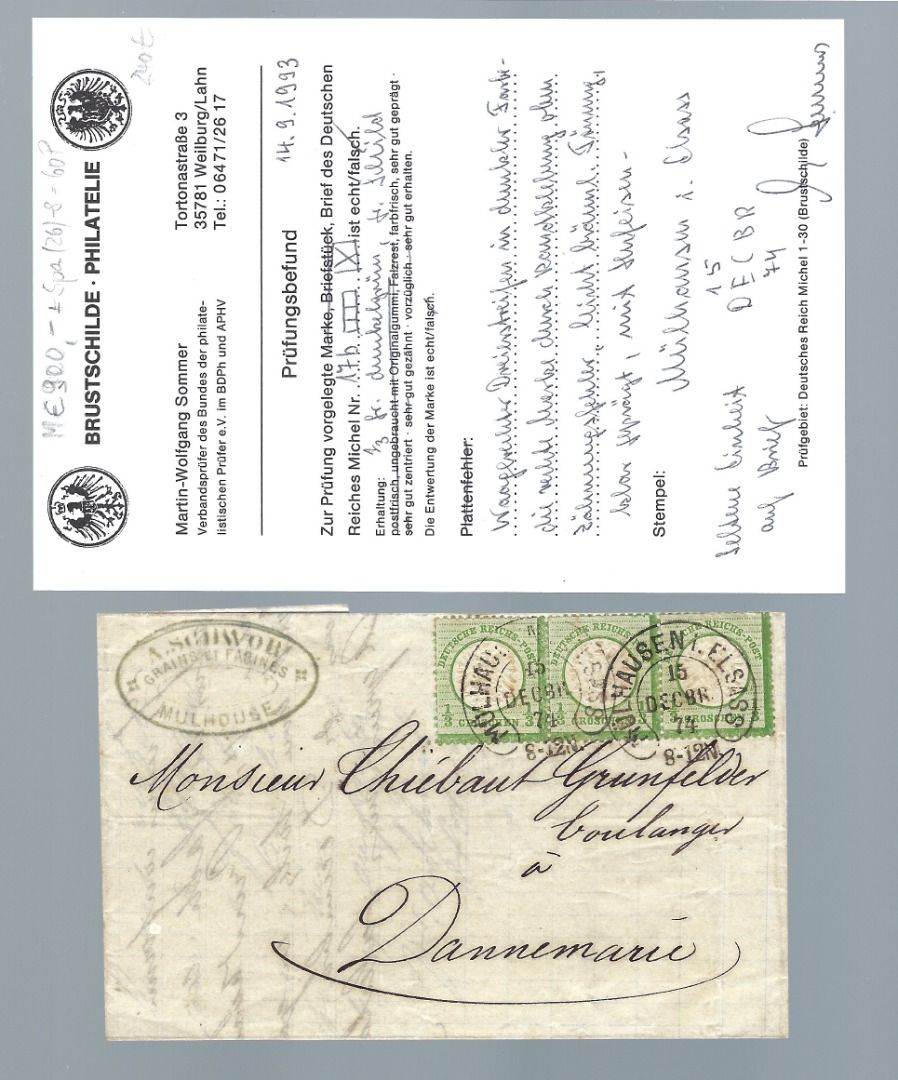 M€900,- + Spa (26)-8 = 60P
240€
BRUSTSCHILDE · PHILATELIE
Martin-Wolfgang Sommer
Verbandsprüfer des Bundes der philate-
listischen Prüfer e.V. im BDPh und APHV
Tortonastraße 3
35781 Weilburg/Lahn
Tel.: 06471/26 17
Prüfungsbefund
14.9.1993
Zur Prüfung vorgelegte Marke, Briefstück, Brief des Deutschen
Reiches Michel Nr. 17b ist echt/falsch.
1/3 Gr. dunkelgrün gr. Schild
Erhaltung:
postfrisch, ungebraucht mit Originalgummi, Falzrest, farbfrisch, sehr gut geprägt ·
sehr gut zentriert · sehr gut gezähnt · vorzüglich · sehr gut erhalten.
Die Entwertung der Marke ist echt/falsch.
Plattenfehler:
Waagerechter Dreierstreifen in dunkler Farbe-
die rechte Marke durch Randklebung oben
Zähnungsfehler, leicht bräunl. Tönung,
geprägt, mit
Stempel:
Mülhausen i. Elsass
15
DECBR
74
Seltene Einheit
auf Brief
Prüfgebiet: Deutsches Reich Michel 1-30 (Brustschilde)
A. SCHWOB
GRAINS ET FARINES
MULHOUSE
DEUTSCHE REICHS-POST
DEUTSCHE REICHS-POST
REICHS-POST
1/3 GROSCHEN 1/3
1/3 GROSCHEN
1/3 GROSCHEN 1/3
MÜLHAUSEN I. ELSASS
15
DECBR
74
8-12N.
MÜLHAUSEN I. ELSASS
15
DECBR
74
8-12N.
Monsieur Thiébaut Grunfelder
boulanger
à
Dannemarie